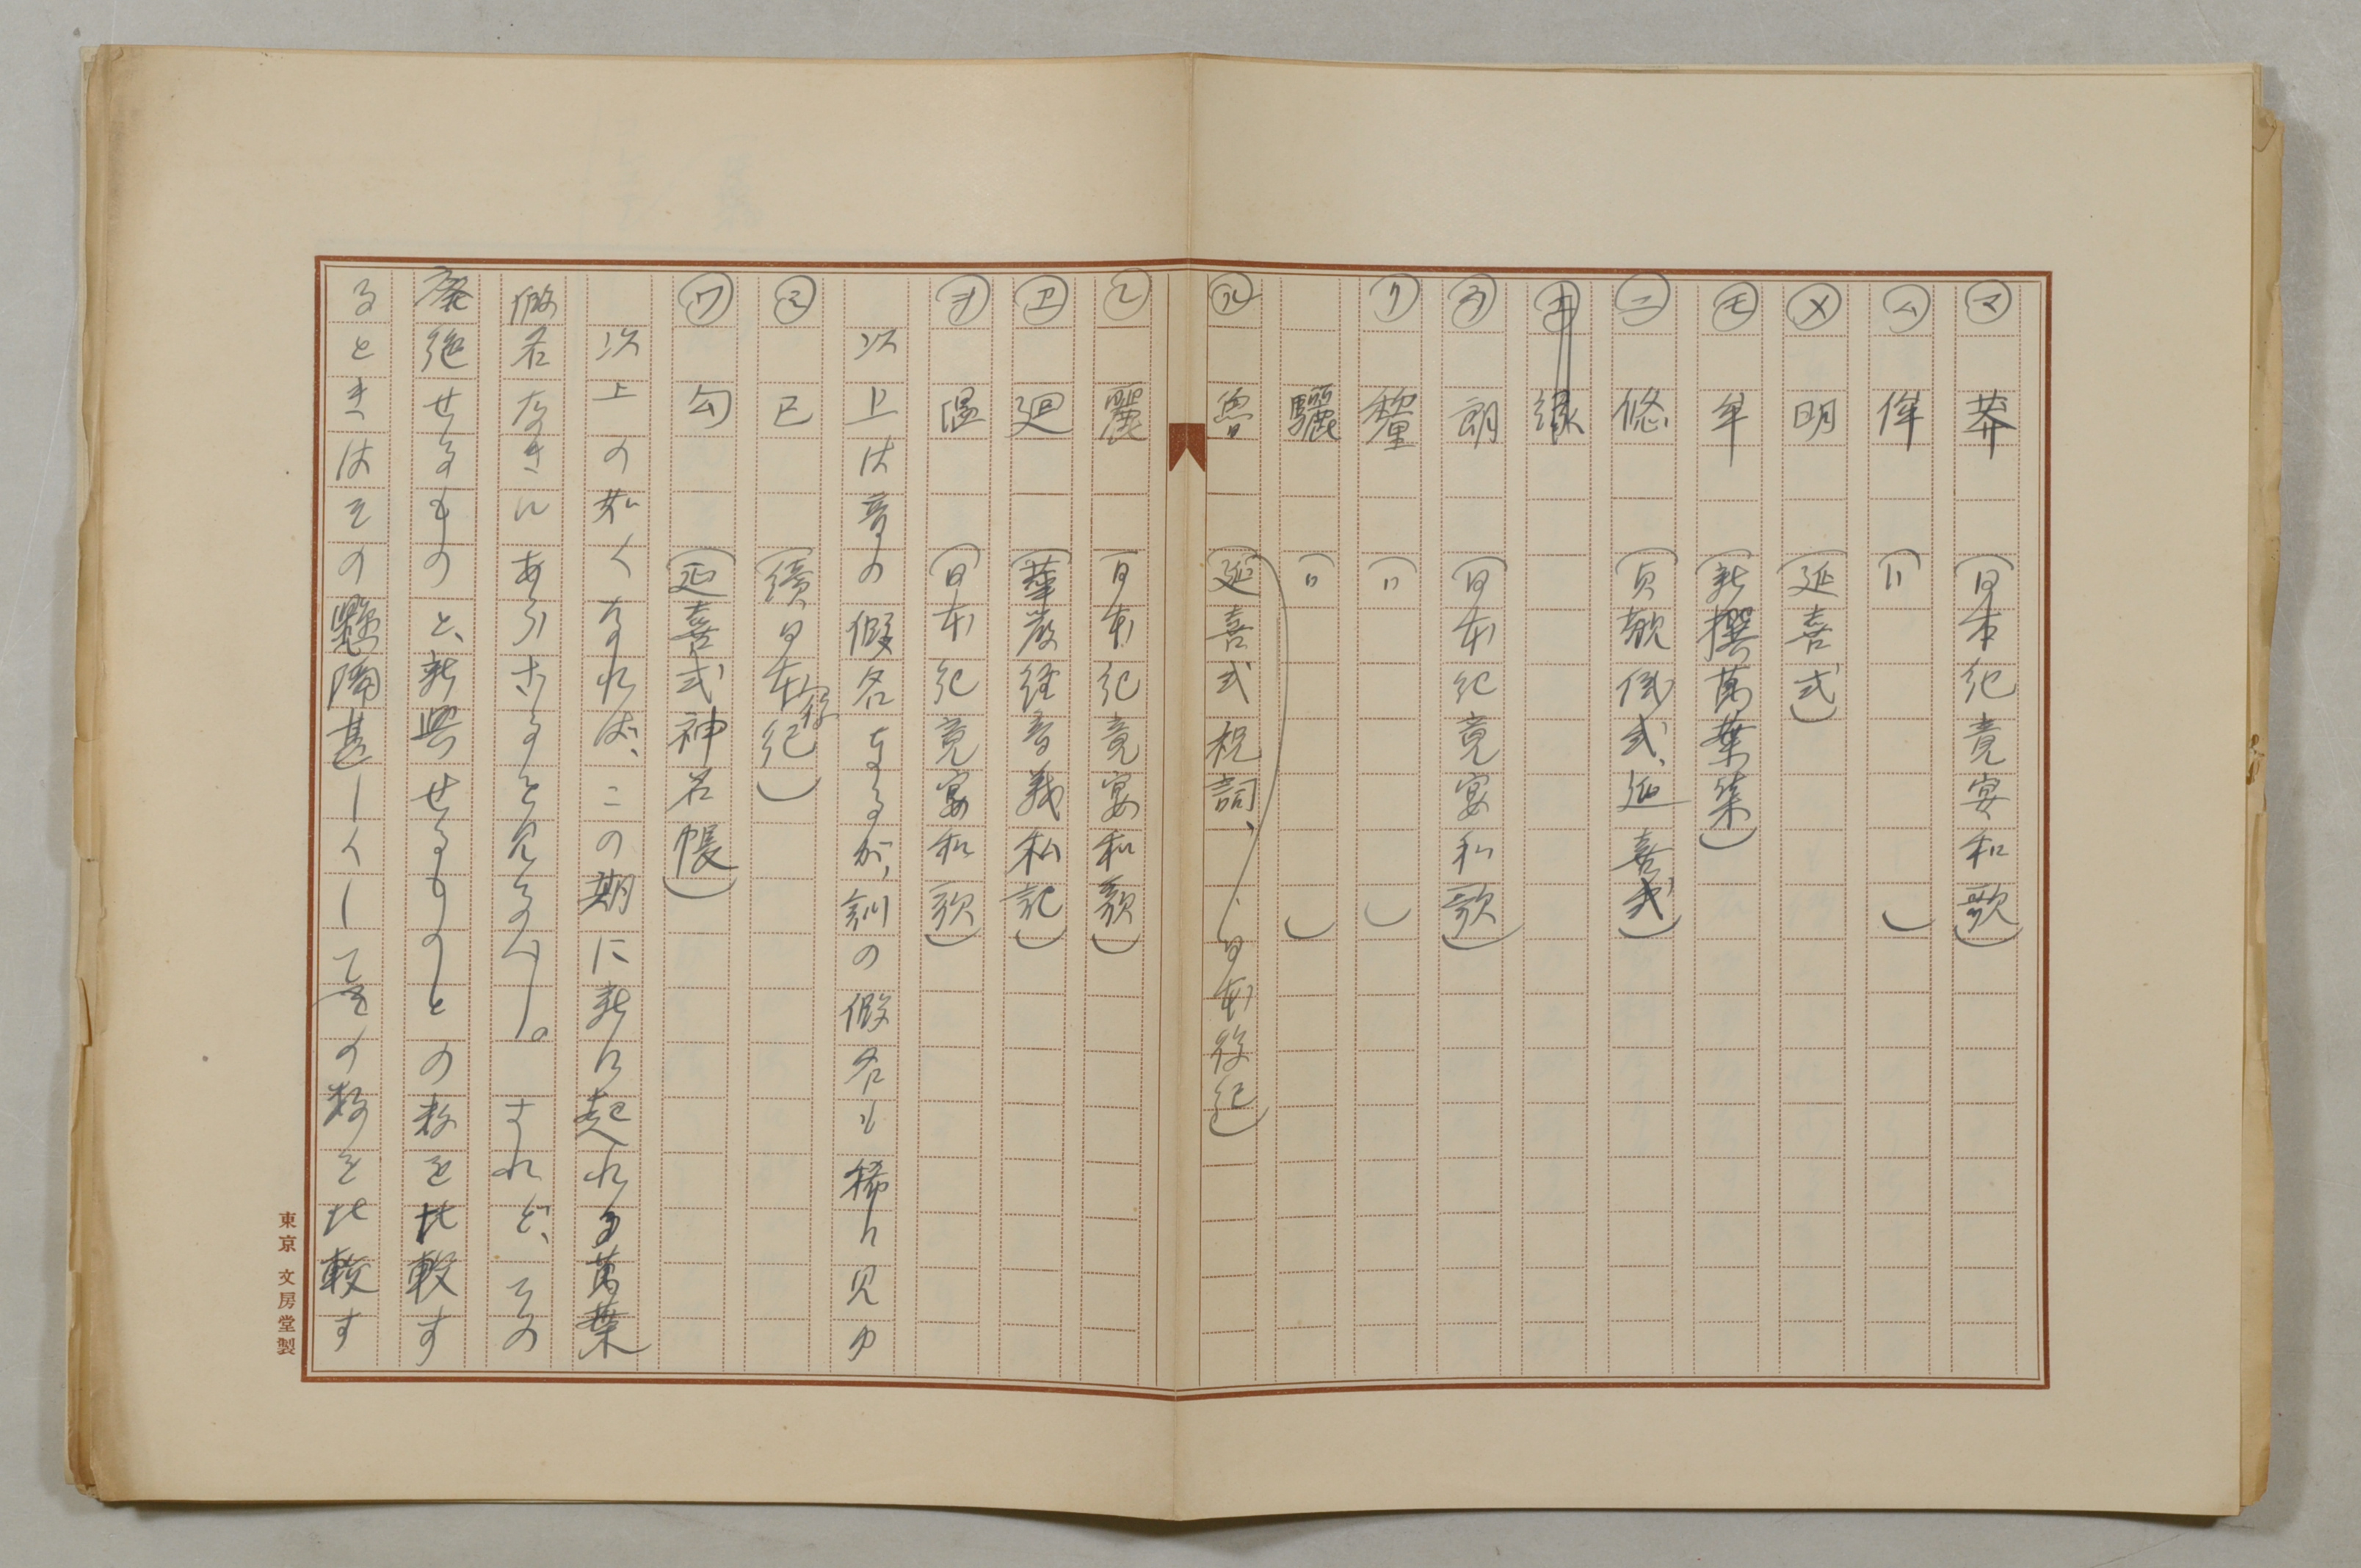 ㋮ 莽 (日本紀竟宴和歌)
㋰ 侔 (〃)
㋱ 明 (延喜式)
㋲ 牟 (新撰萬葉集)
㊁ 悠 (貞観儀式、延喜式)
縁
㋶ 朗 (日本紀竟宴和歌)
㋷ 釐 (〃)
驪 (〃)
㋸ 魯 (延喜式祝詞、日本後紀)
㋹ 麗 (日本紀竟宴和歌)
㋽ 廻 (華厳経音義私記)
㋔ 温 (日本紀竟宴和歌)
以上は音の假名なるが、訓の假名も稀に見ゆ
㋯ 已 (續日本後紀)
㋻ 勾 (延喜式神名帳)
以上の如くなれば、この期に新に起れる萬葉
假名なきにあらざるを見るべし。されど、その
廃絶せるものと、新興せるものとの数を比較す
るときはその懸隔甚しくして、その数を比較す
東京 文房堂製